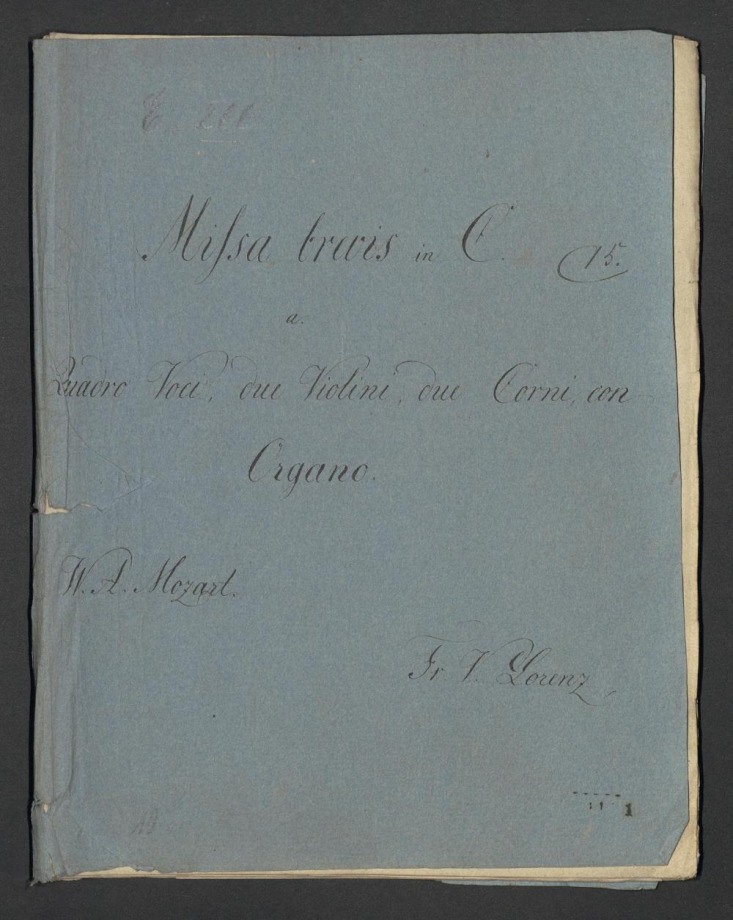 Missa brevis in C.
15.
a.
Quadro Voci, due Violini, due Corni, con
Organo.
W. A. Mozart.
Fr V. Lorenz
1